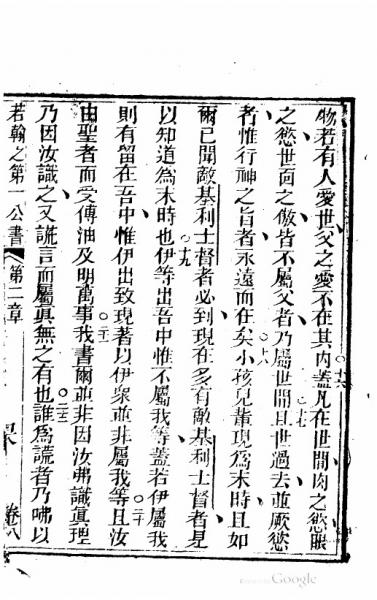 物若有人愛世父之愛不在其內蓋凡在世間肉之慾眼
○十六
之慾世面之傲皆不屬父者乃屬世間且世過去並厥慾
○十七
者惟行神之旨者永遠而在矣小孩兒輩現為末時且如
○十八
爾已聞敵基利士督者必到現在多有敵基利士督者是
以知道為末時也伊等出吾中惟不屬我等蓋若伊屬我
○十九
則有留在吾中惟伊出致現著以伊衆並非屬我等且汝
○二十
由聖者而受傅油及明萬事我書爾並非因汝弗識眞理
○二一
乃因汝識之又謊言而屬眞無之有也誰為謊者乃咈以
○二二
若翰之第一公書 第二章
卷八
Google